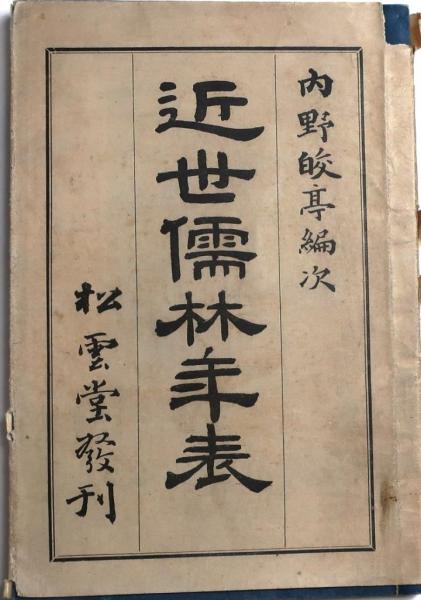 內野皎亭編次
近世儒林年表
松雲堂發刊